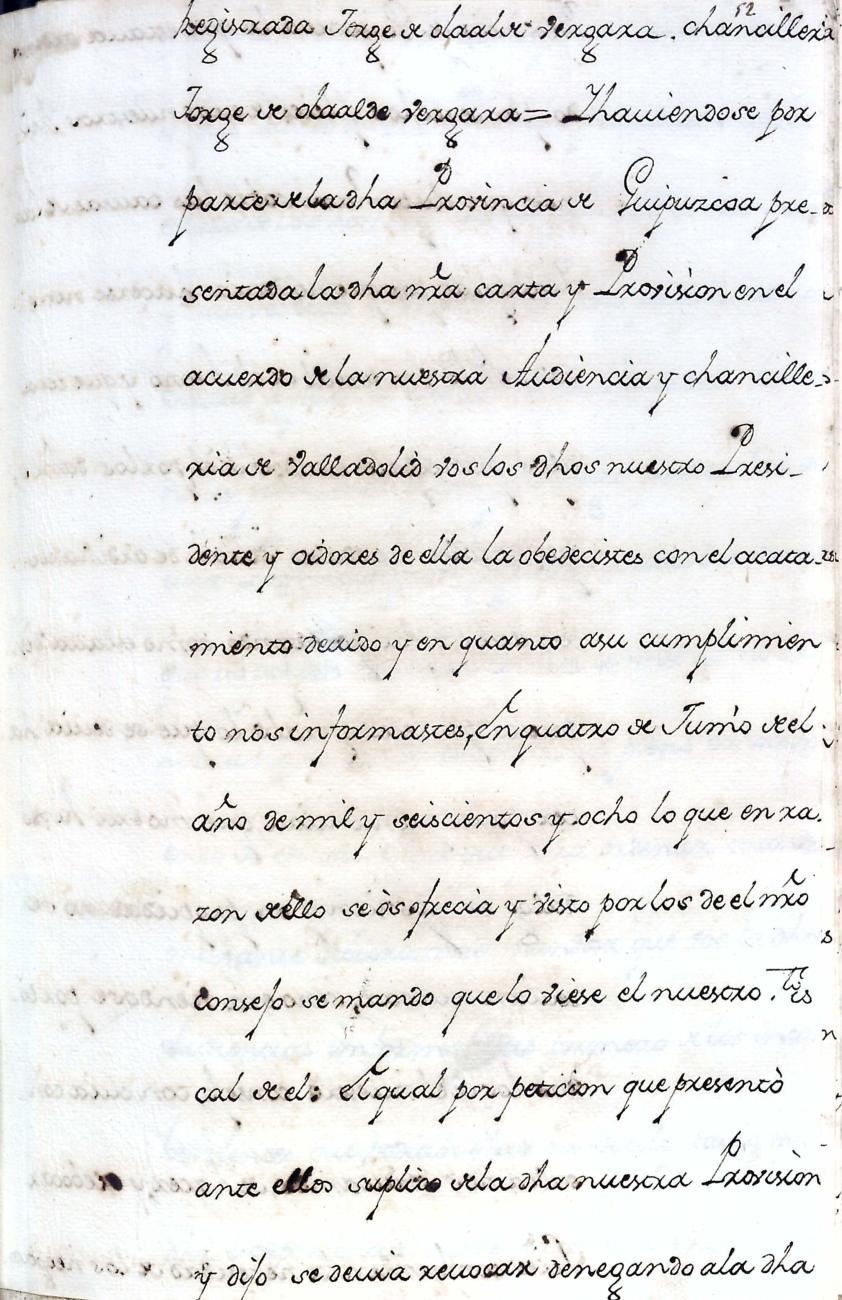 52
Registrada Jorge de olaalde vergara. chancilleria
Jorge de olaalde vergara = Yhauiendose por
parte de la dha Provincia de Guipuzcoa pre-
sentada la dha nr̃a carta y Provision en el
acuerdo de la nuestra Audiencia y chancille-
ria de valladolid vos los dhos nuestro Presi-
dente y oidores de ella la obedecistes con el acata-
miento deuido y en quanto asu cumplimien
to nos informastes, En quatro de Junio de el
año de mil y seiscientos y ocho lo que en ra-
zon dello se os ofrecia y visto por los de el nr̃o
consejo se mando que lo viese el nuestro fis
cal de el: El qual por peticion que presentò
ante ellos suplico de la dha nuestra Provision
y dijo se deuia reuocar denegando ala dha